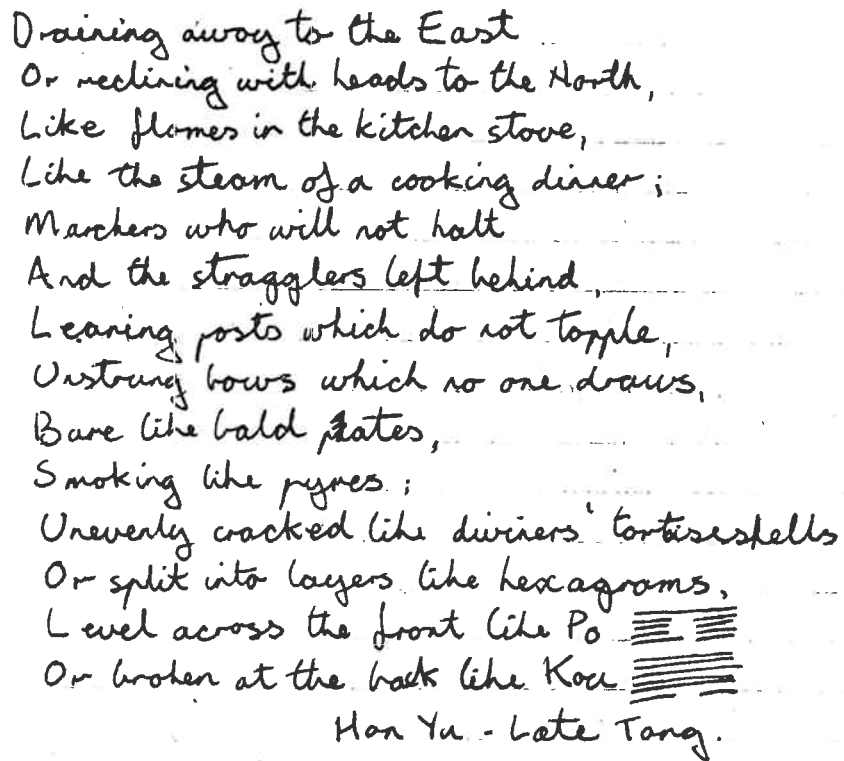 Draining away to the East
Or reclining with heads to the North,
Like flames in the kitchen stove,
Like the steam of a cooking dinner;
Marchers who will not halt
And the stragglers left behind,
Leaning posts which do not topple,
Unstrung bows which no one draws,
Bare like bald pates,
Smoking like pyres;
Unevenly cracked like diviners' tortiseshells
Or split into layers like hexagrams,
Level across the front like Po
Or broken at the back like Kou
Han Yu - Late Tang.